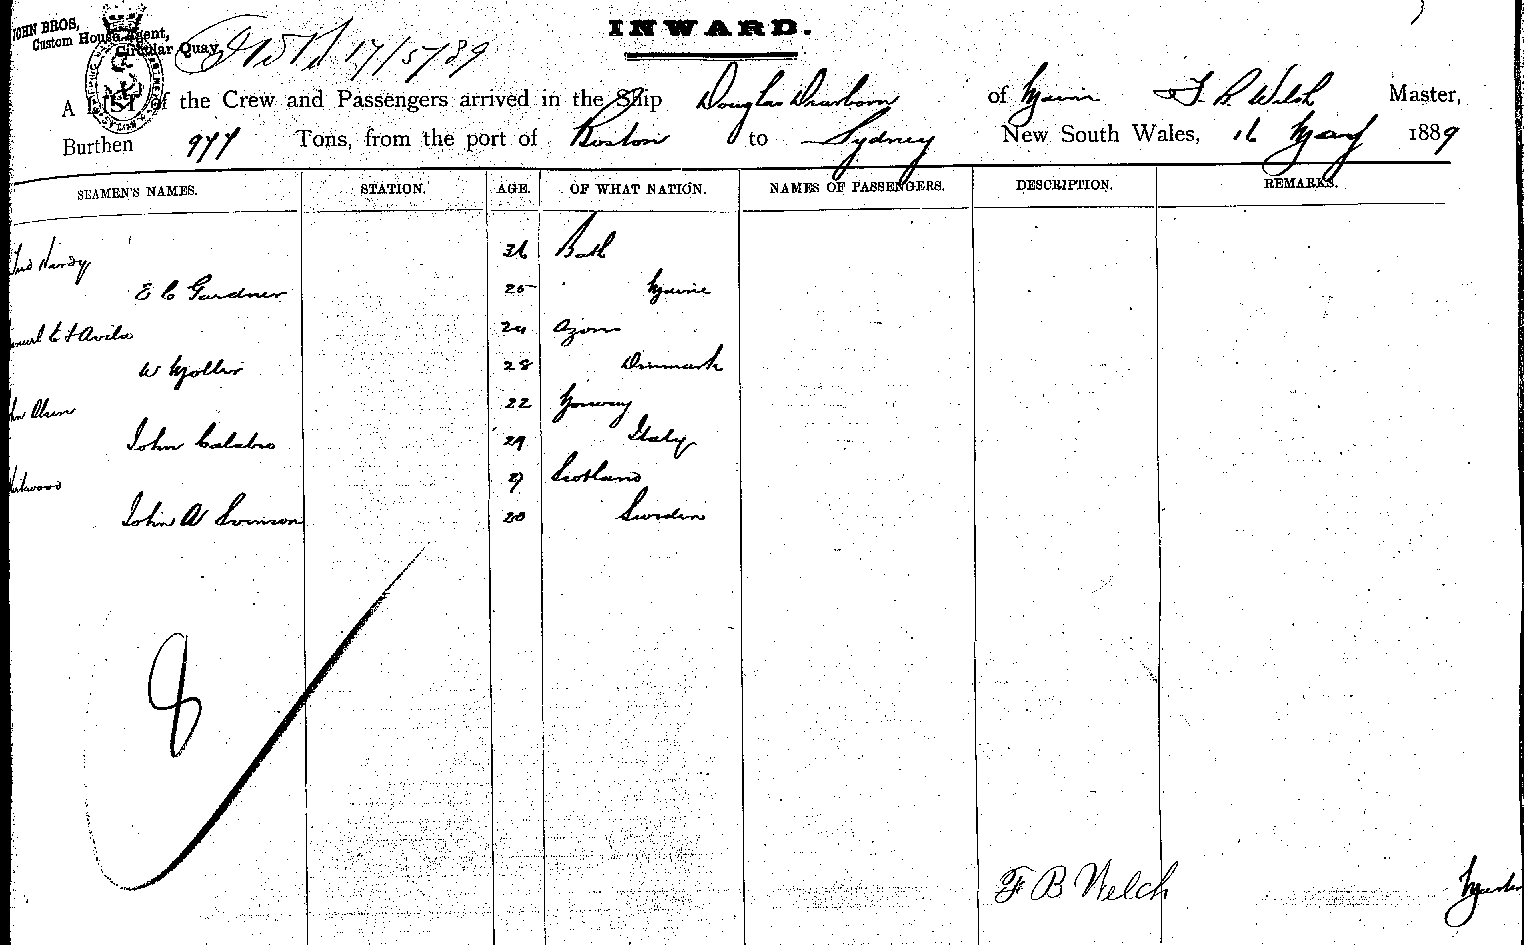 JOHN BROS,
Custom House Agent,
Circular Quay
17/5/89
INWARD.
A LIST of the Crew and Passengers arrived in the Ship Douglas Dearborn of Maine F. B. Welch Master,
Burthen 977 Tons, from the port of Boston to Sydney New South Wales, 16 May 1889
SEAMEN'S NAMES. STATION. AGE. OF WHAT NATION. NAMES OF PASSENGERS. DESCRIPTION. REMARKS.
Hardy 36 Bath
E C Gardner 25 Maine
Avila 24
W Moller 28 Denmark
Olsen 22 Norway
John Calabro 29 Italy
Scotland
John A Swinson 20 Sweden
8
F B Welch Master